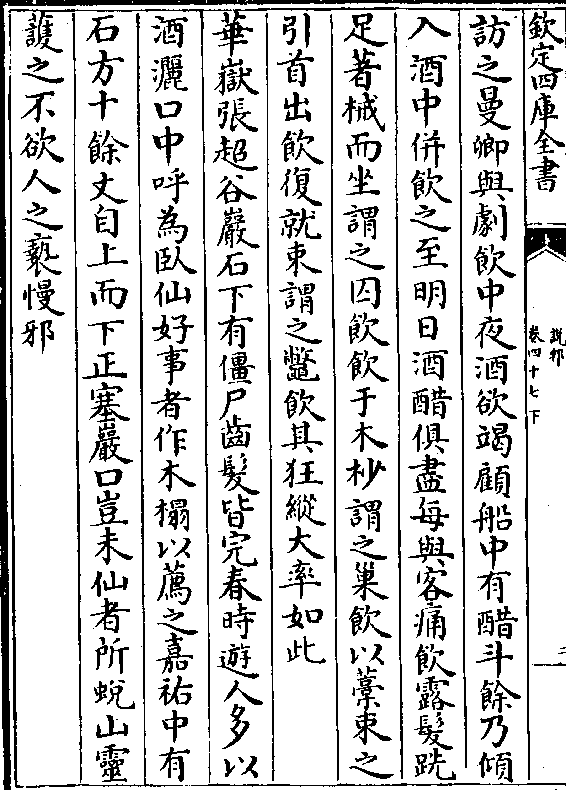 欽定四庫全書
說郛
卷四十七下
二
訪之曼卿與劇飲中夜酒欲竭顧船中有醋斗餘乃傾
入酒中併飲之至明日酒醋俱盡每與客痛飲露髮跣
足著械而坐謂之囚飲飲于木杪謂之巢飲以藁束之
引首出飲復就束謂之鼈飲其狂縱大率如此
華嶽張超谷巖石下有僵尸齒髮皆完春時遊人多以
酒灑口中呼為臥仙好事者作木榻以薦之嘉祐中有
石方十餘丈自上而下正塞巖口豈未仙者所蛻山靈
護之不欲人之褻慢邪